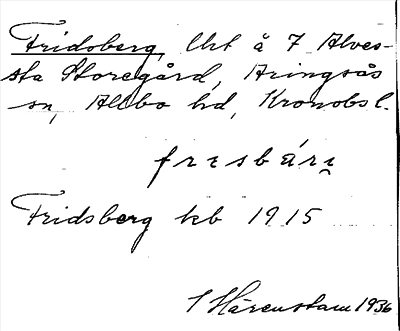 Fridsberg, lht å 7 Alves-
sta Storegård, Aringsås
sn, Allbo hd, Kronobs l.
frɪsbärɪ̯
Fridsberg kb 1915
I Härenstam 1936